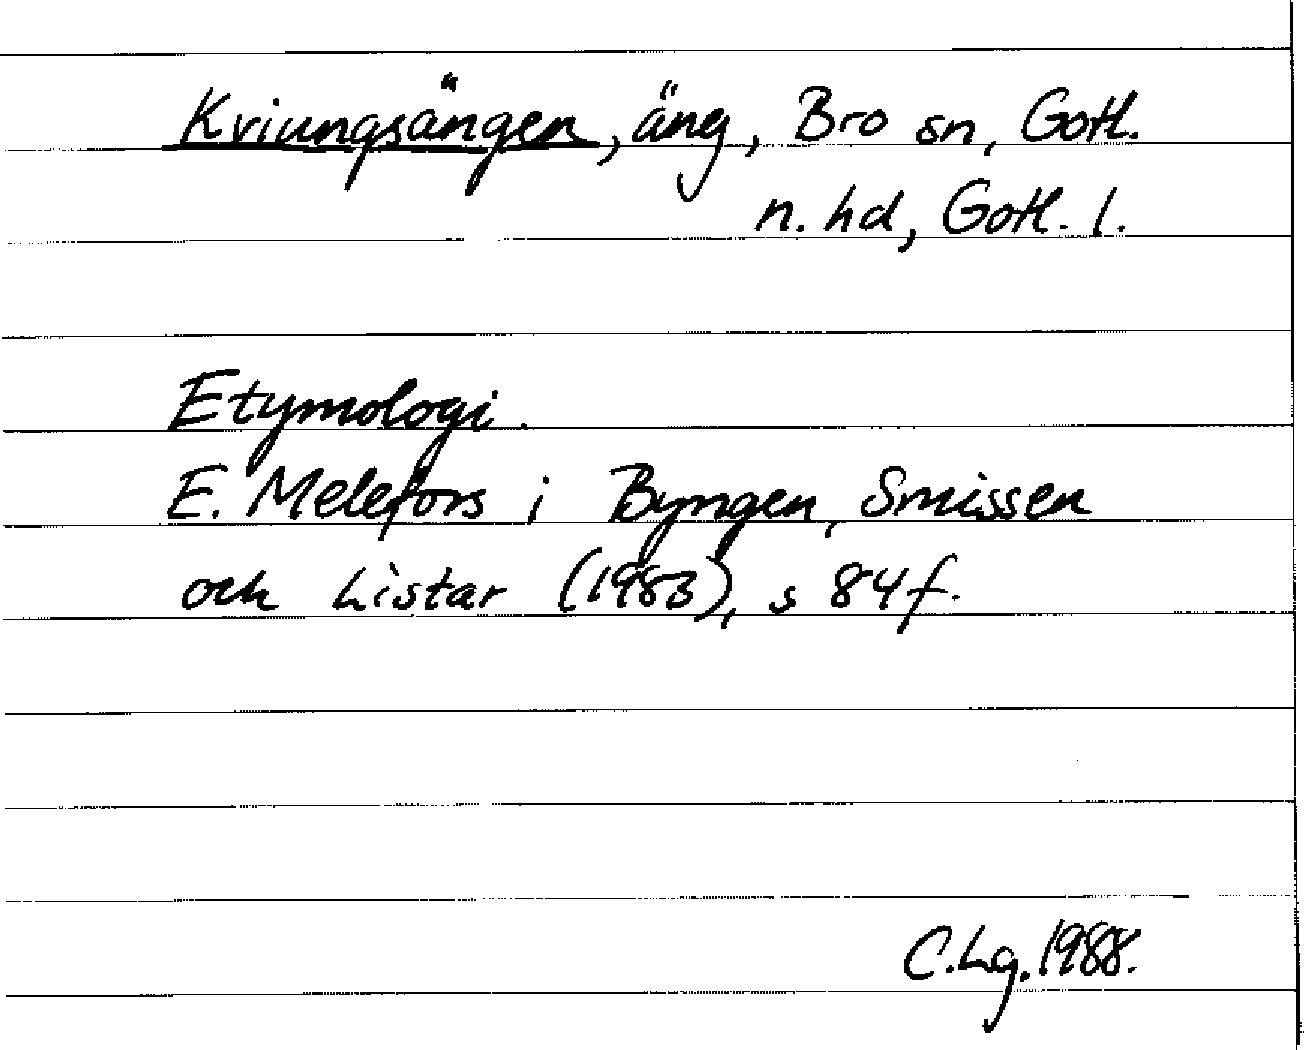 Kviungsängen, äng, Bro sn, Gotl.
n. hd, Gotl. l.
Etymologi.
E. Melefors i Byngen, Smissen
och Listar (1983), s 84f.
C.Lg. 1988.